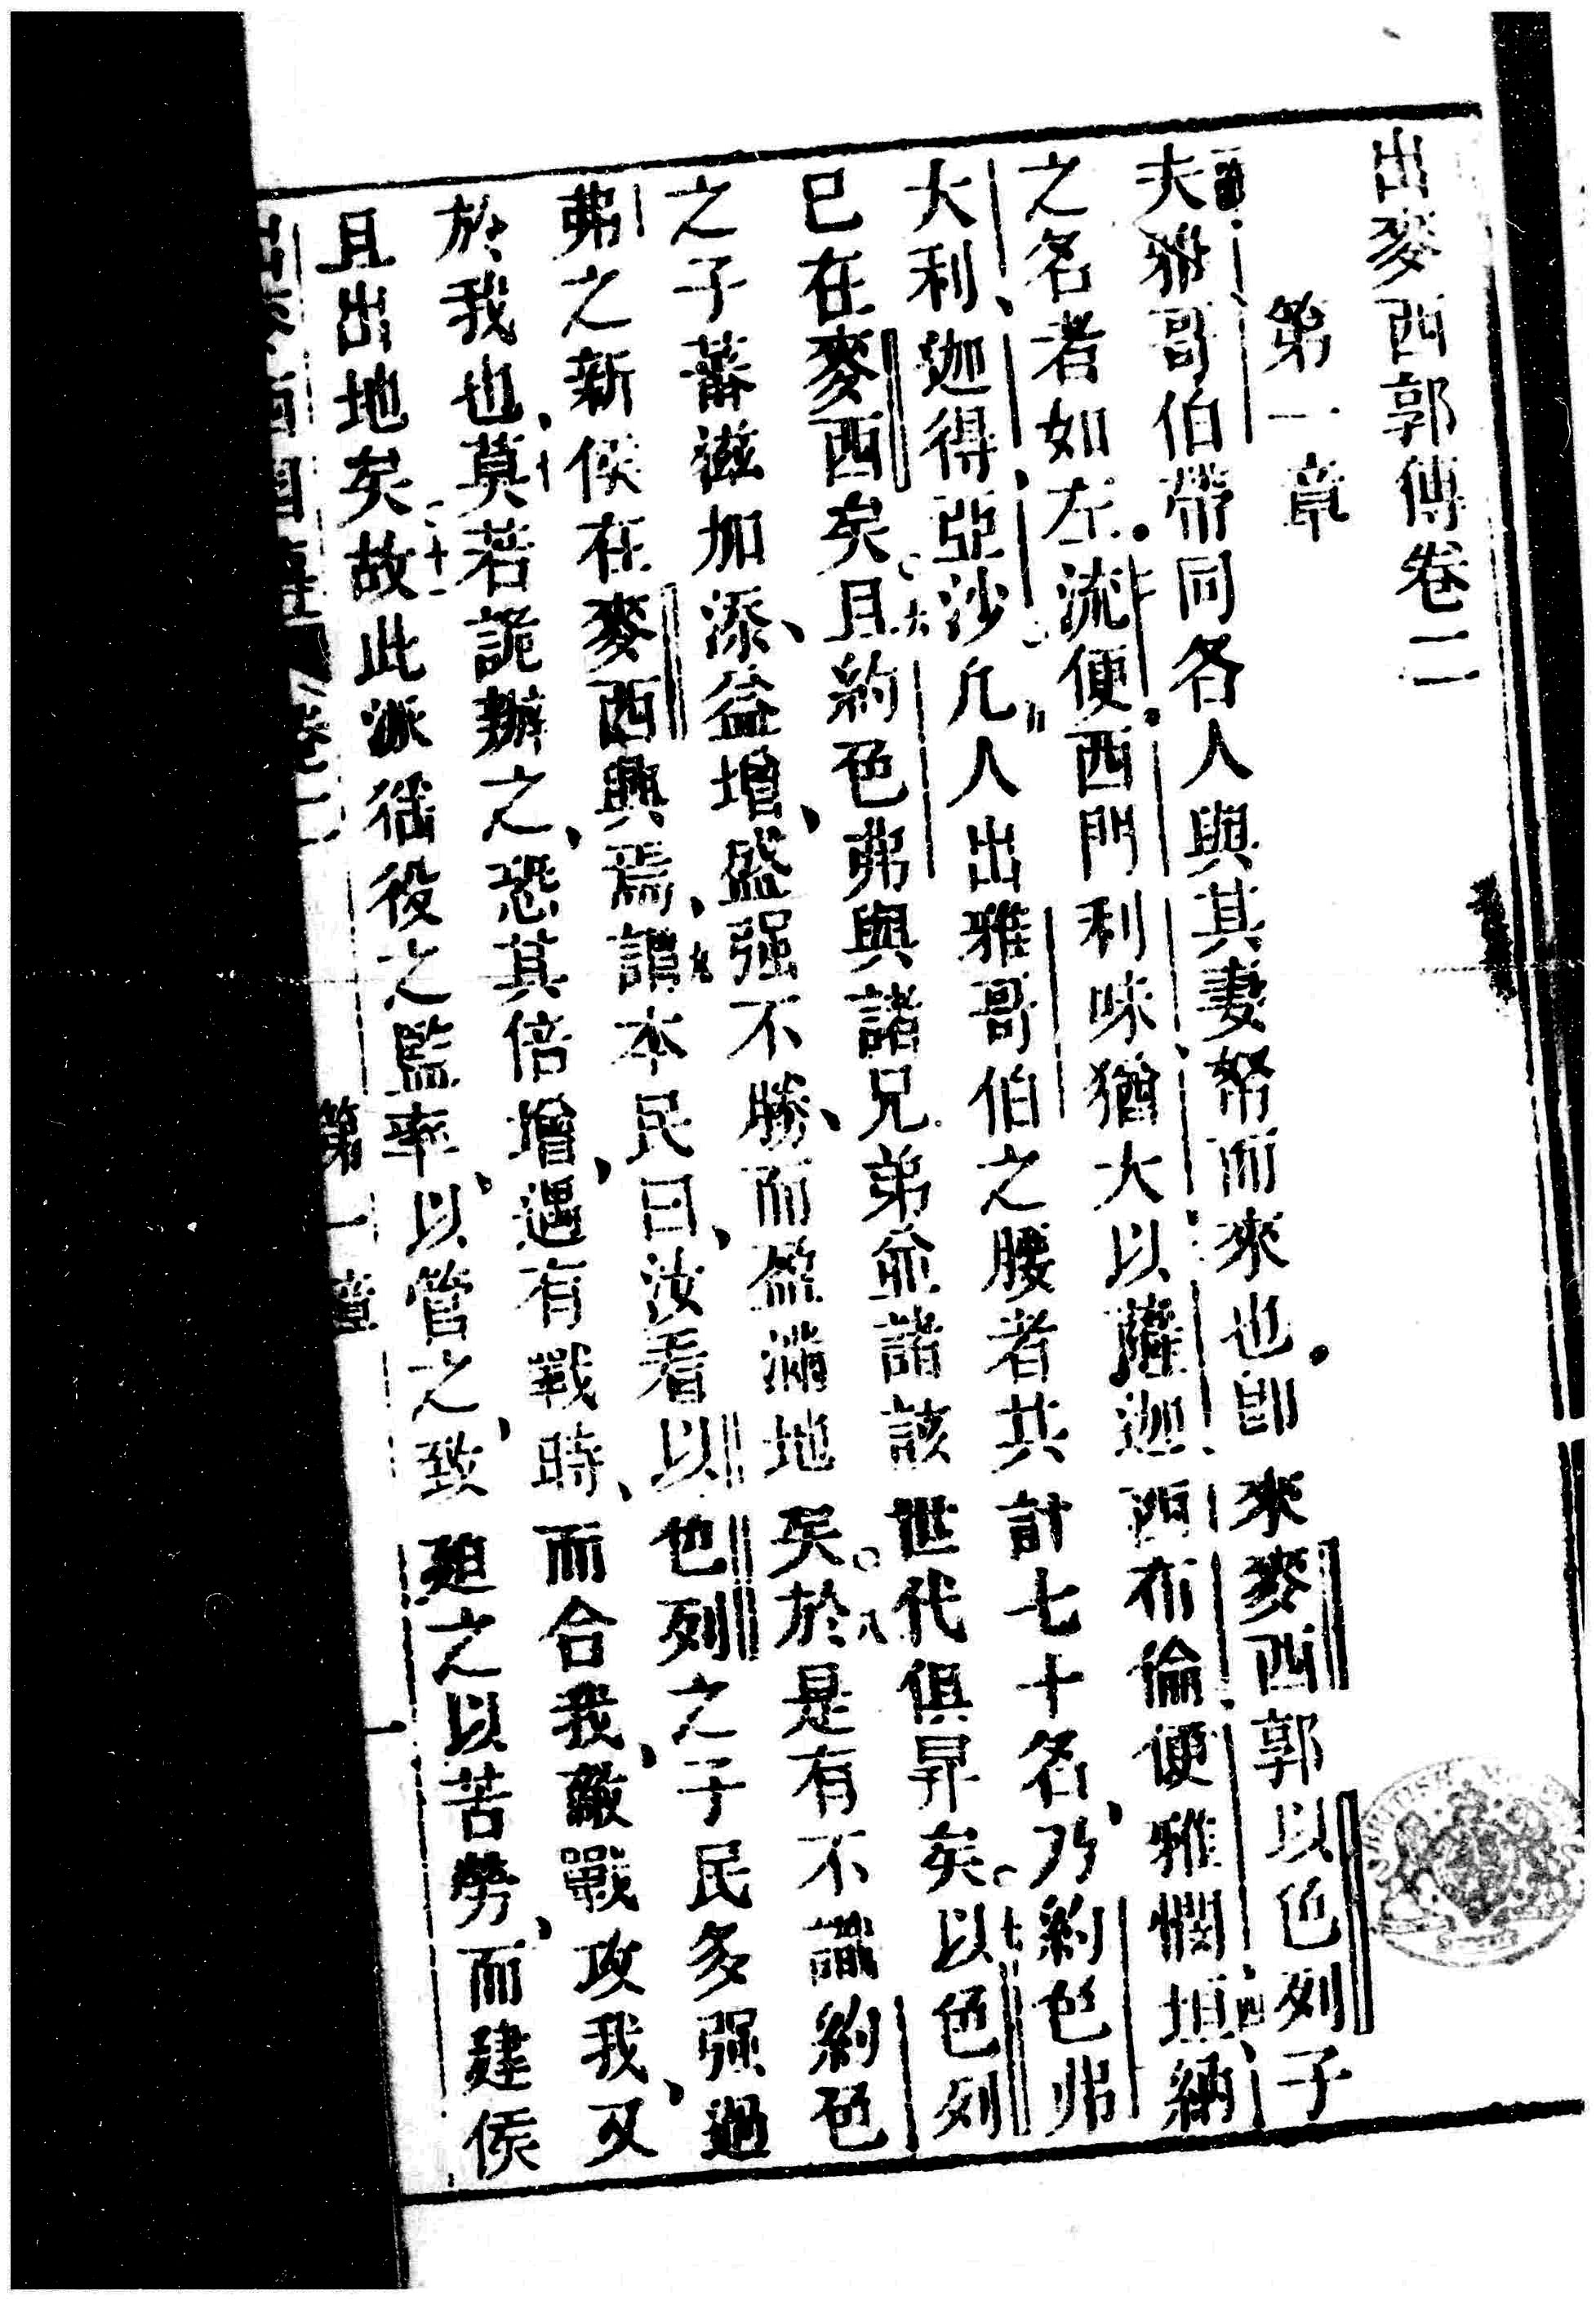 出麥西郭傳卷二
第一章
夫雅哥伯帶同各人與其妻帑而來也即來麥西郭以色列子
之名者如左流便西門利味猶大以薩迦西布倫便雅憫坦納
大利迦得亞沙凡人出雅哥伯之腰者共計七十名乃約色弗
已在麥西矣且約色弗與諸兄弟並諸該世代俱昇矣以色列
之子蕃滋加添益增盛强不勝而盈滿地矣於是有不識約色
弗之新侯在麥西興焉謂本民曰汝看以色列之子民多强過
於我也莫若詭辦之恐其倍增遇有戰時而合我敵戰攻我又
且出地矣故此派徭役之監率以管之致廹之以苦勞而建侯
第一章 一